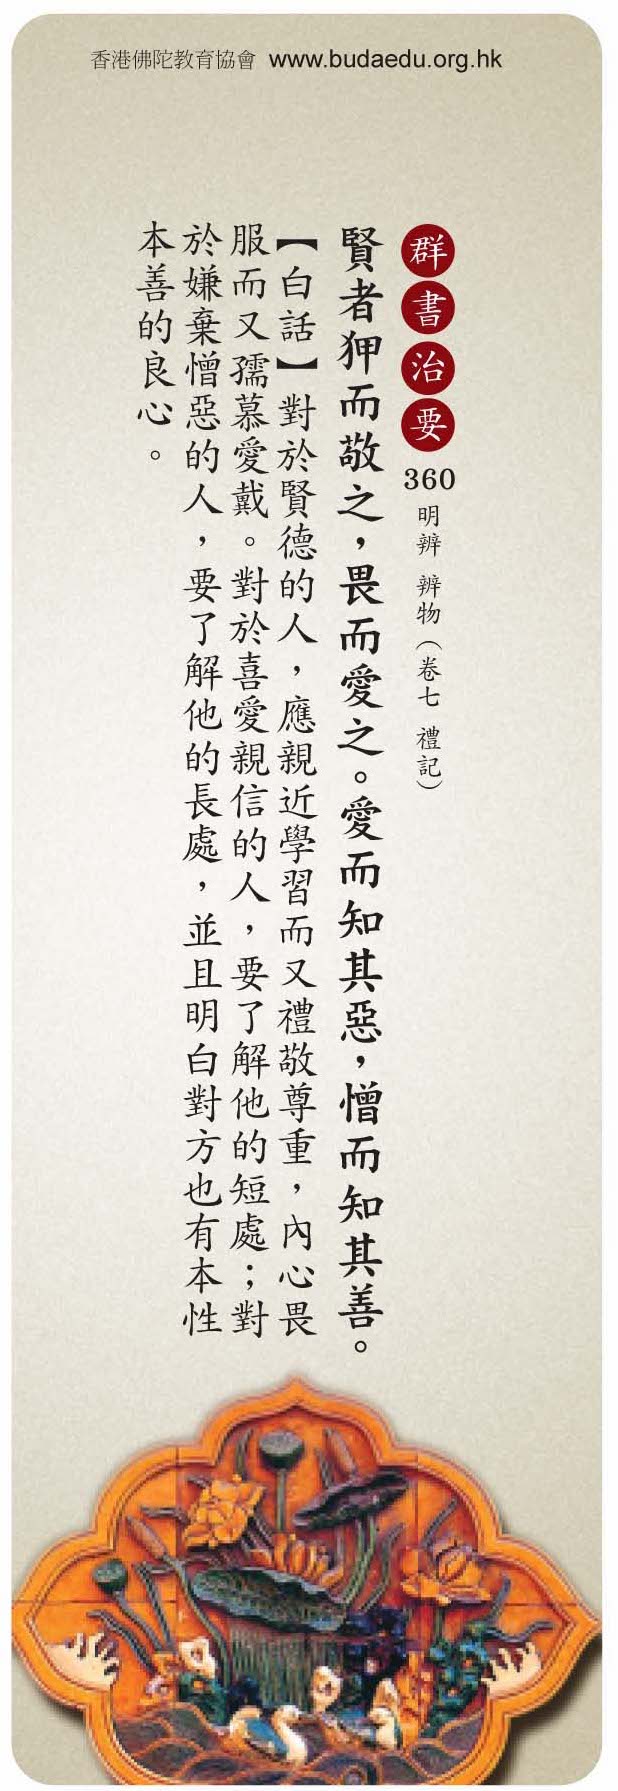 香港佛陀教育協會 www.budaedu.org.hk
群書治要360 明辨 辨物（卷七 禮記）
賢者狎而敬之，畏而愛之。愛而知其惡，憎而知其善。
【白話】對於賢德的人，應親近學習而又禮敬尊重，內心畏
服而又孺慕愛戴。對於喜愛親信的人，要了解他的短處；對
於嫌棄憎惡的人，要了解他的長處，並且明白對方也有本性
本善的良心。